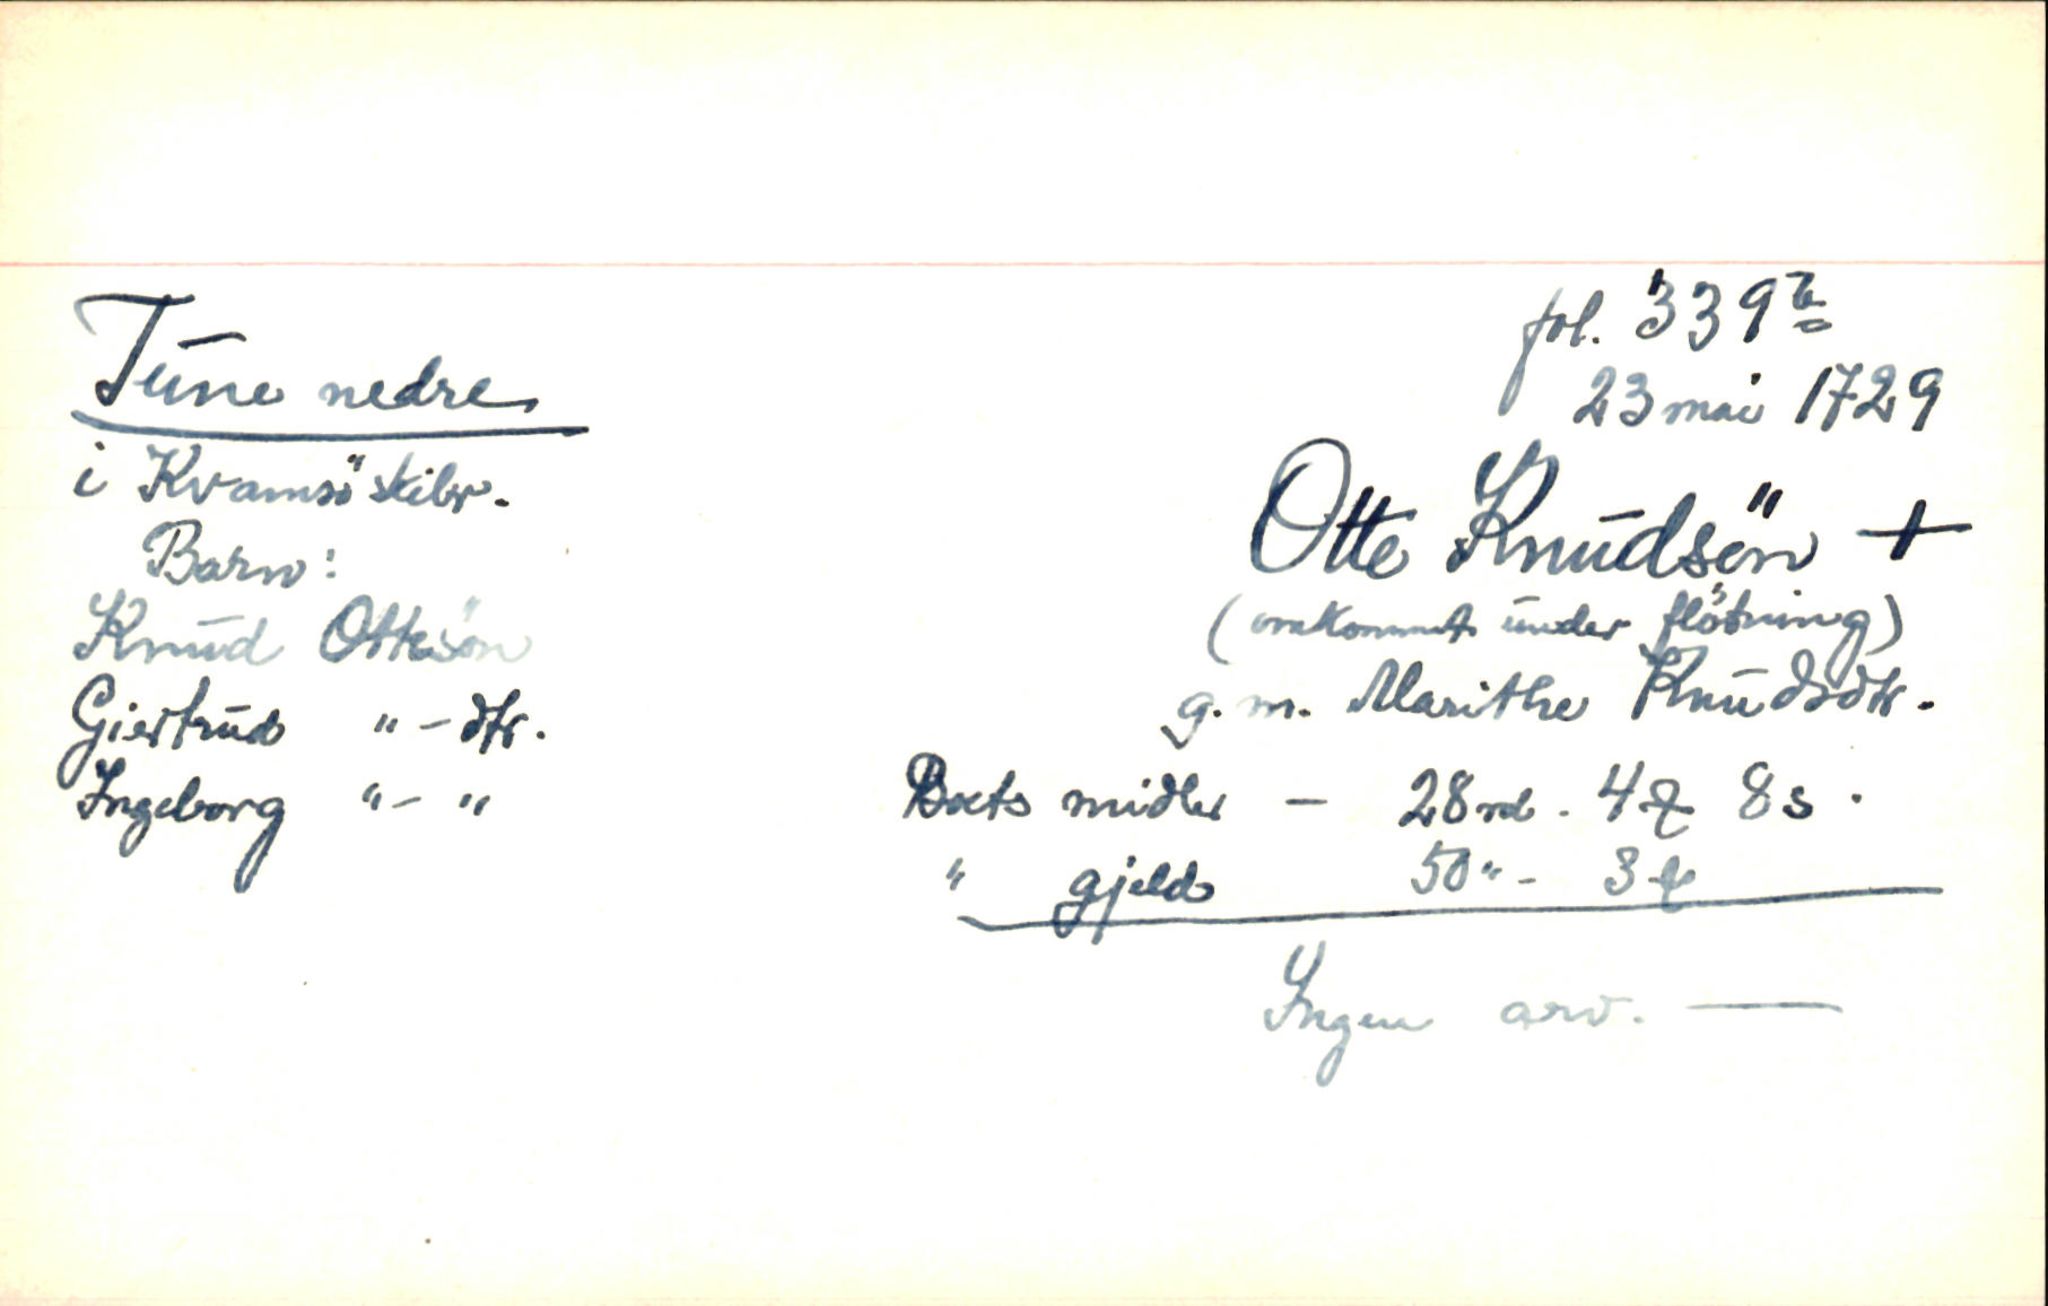 Tune nedre
i Kvamsö skibr.
Barn:
Knud Ottesön
Giertrud " - dtr.
Ingeborg " - "
fol. 339b
23 mai 1729
Otte Knudsön +
(omkommet under flötning)
g. m. Marithe Knudsdtr.
Boets midler - 28 rd. 4 8 s.
" gjeld 50 " - 3
Ingen arv.